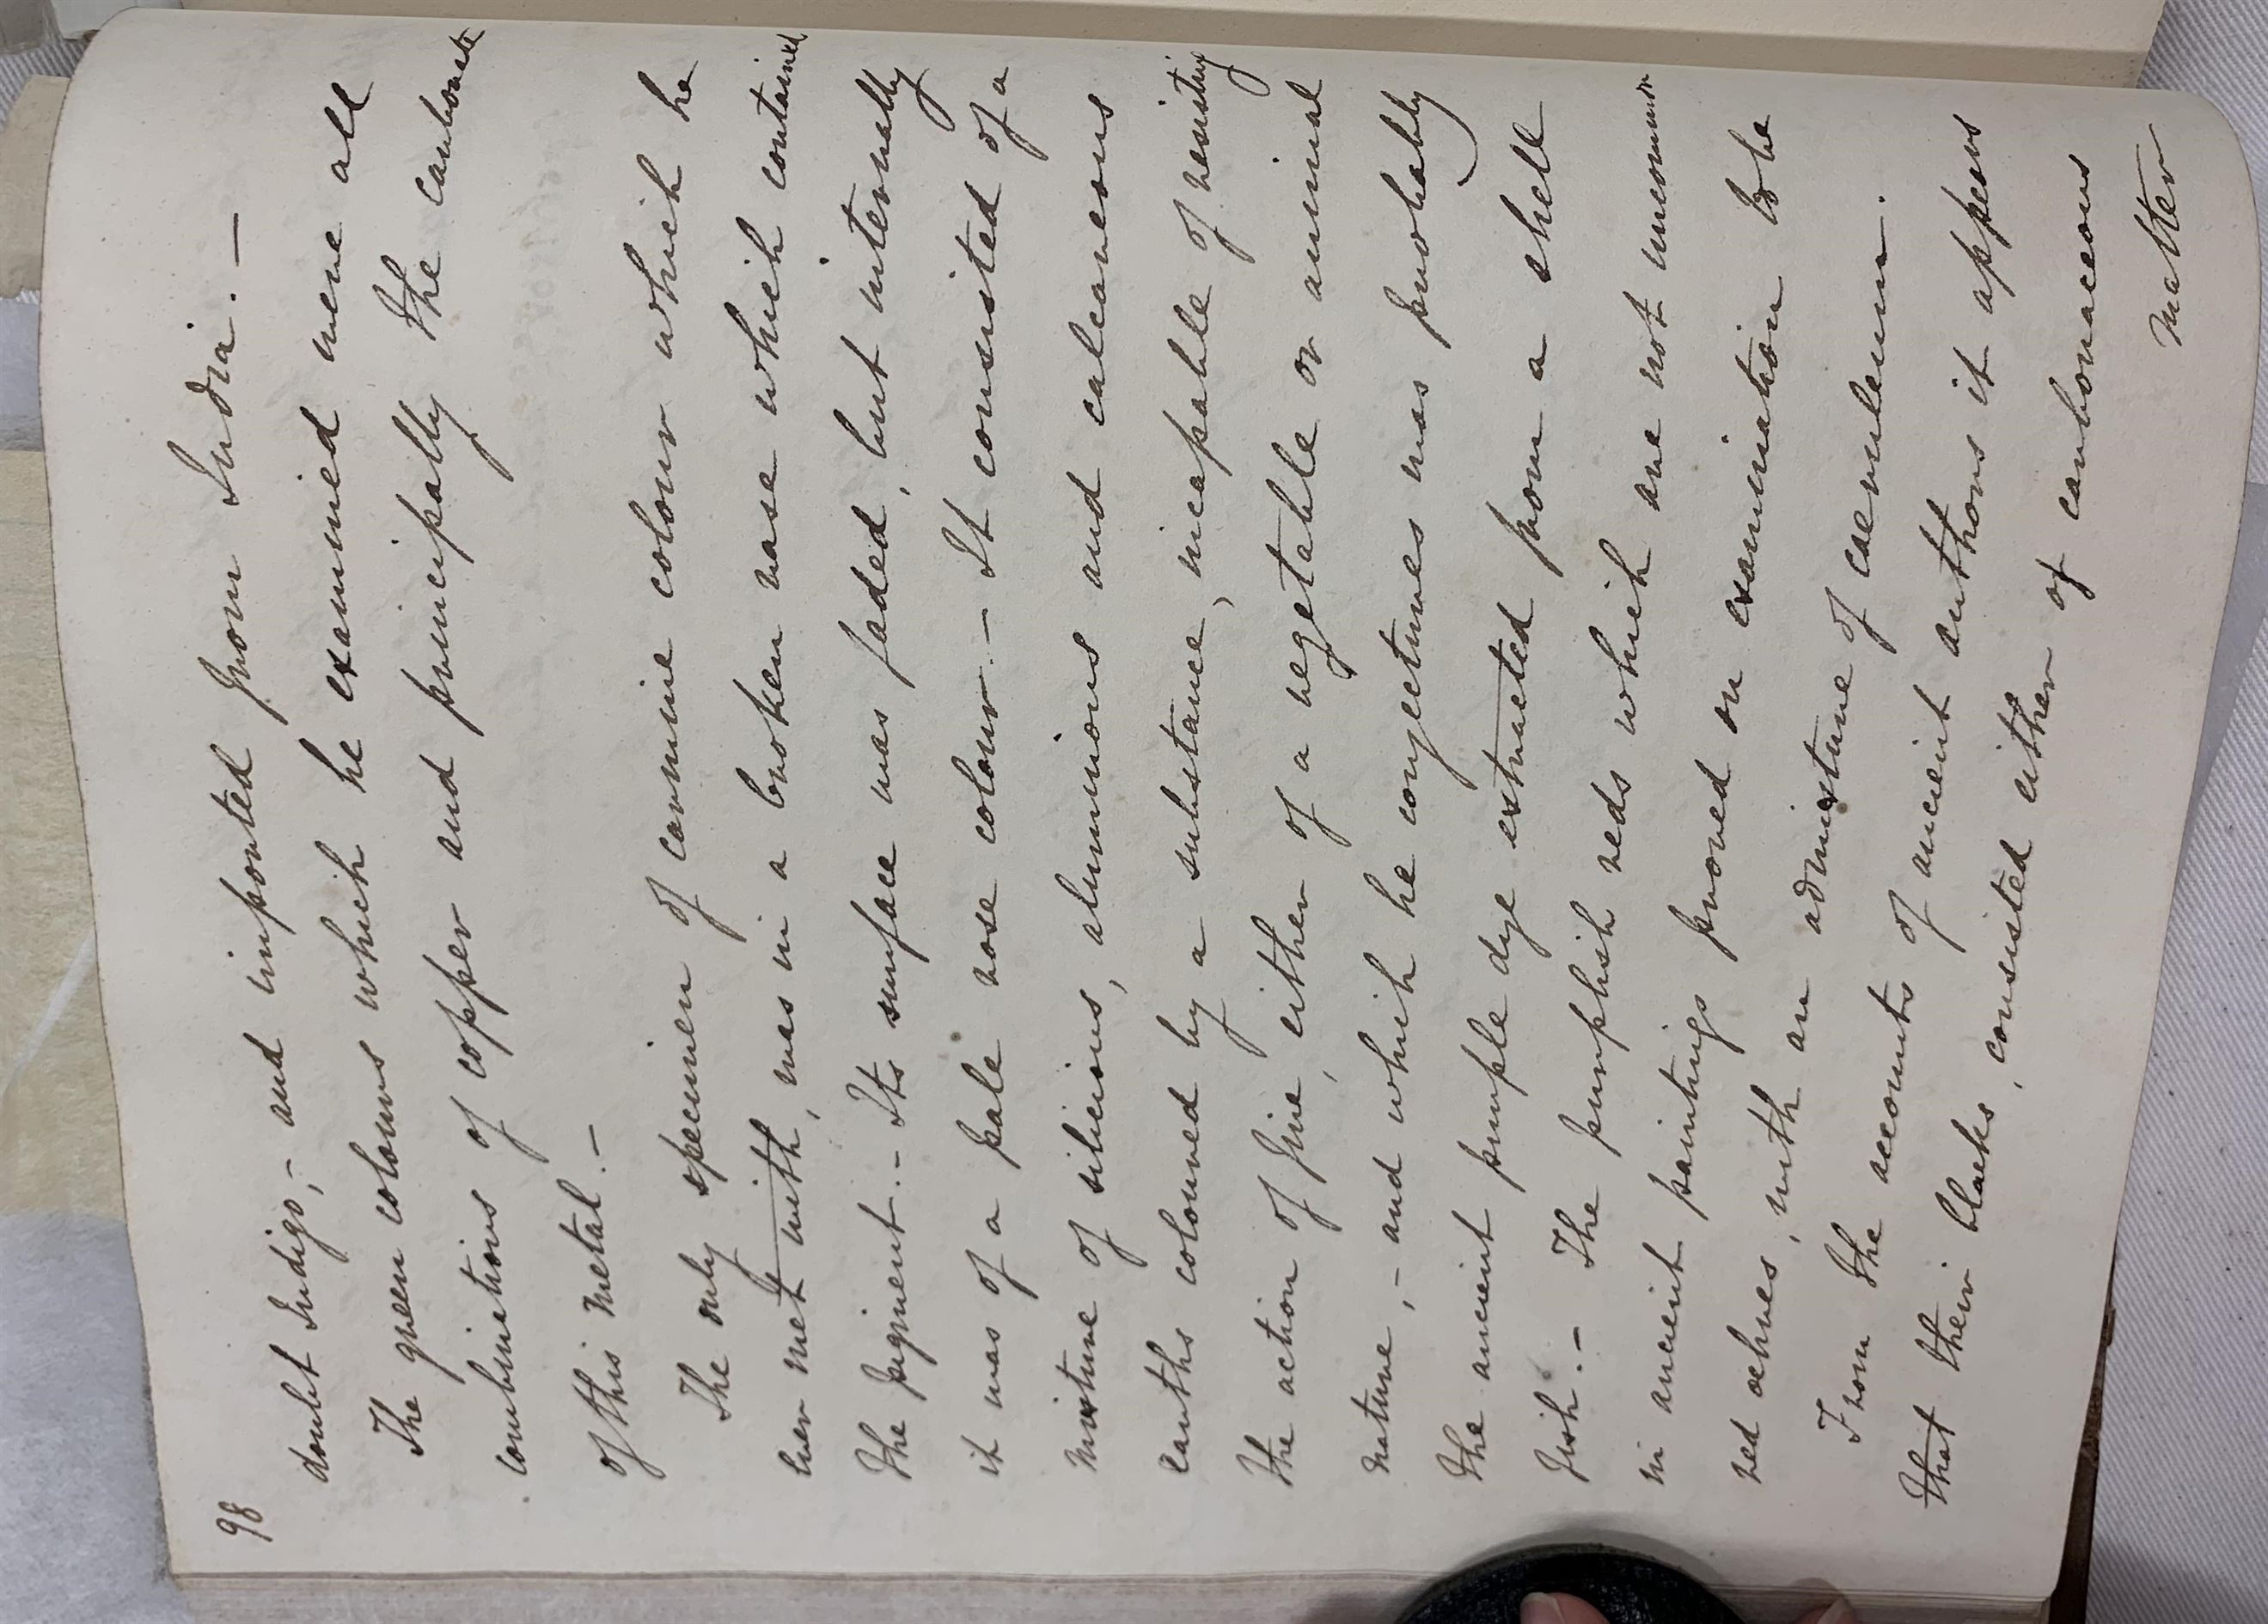 98
doubt Indigo,- and imported from India. —
The green colours which he examined were all
combinations of copper and principally the carbonate
of this metal. —
The only specimen of carmine colour which he
ever met with, was in a broken vase which contained
the pigment.- Its surface was faded, but internally
it was of a pale rose colour.- It consisted of a
mixture of silicious, aluminous and calcareous
earths coloured by a substance, incapable of resisting
the action of fire, either of a vegetable or animal
nature,- and which he conjectures was probably
the ancient purple dye extracted from a shell
fish.- The purplish reds which are not uncommon
in ancient paintings proved on examination to be
red ochres, with an admixture of caeruleum.
From the accounts of ancient authors it appears
that their blacks, consisted either of carbonaceous
matter